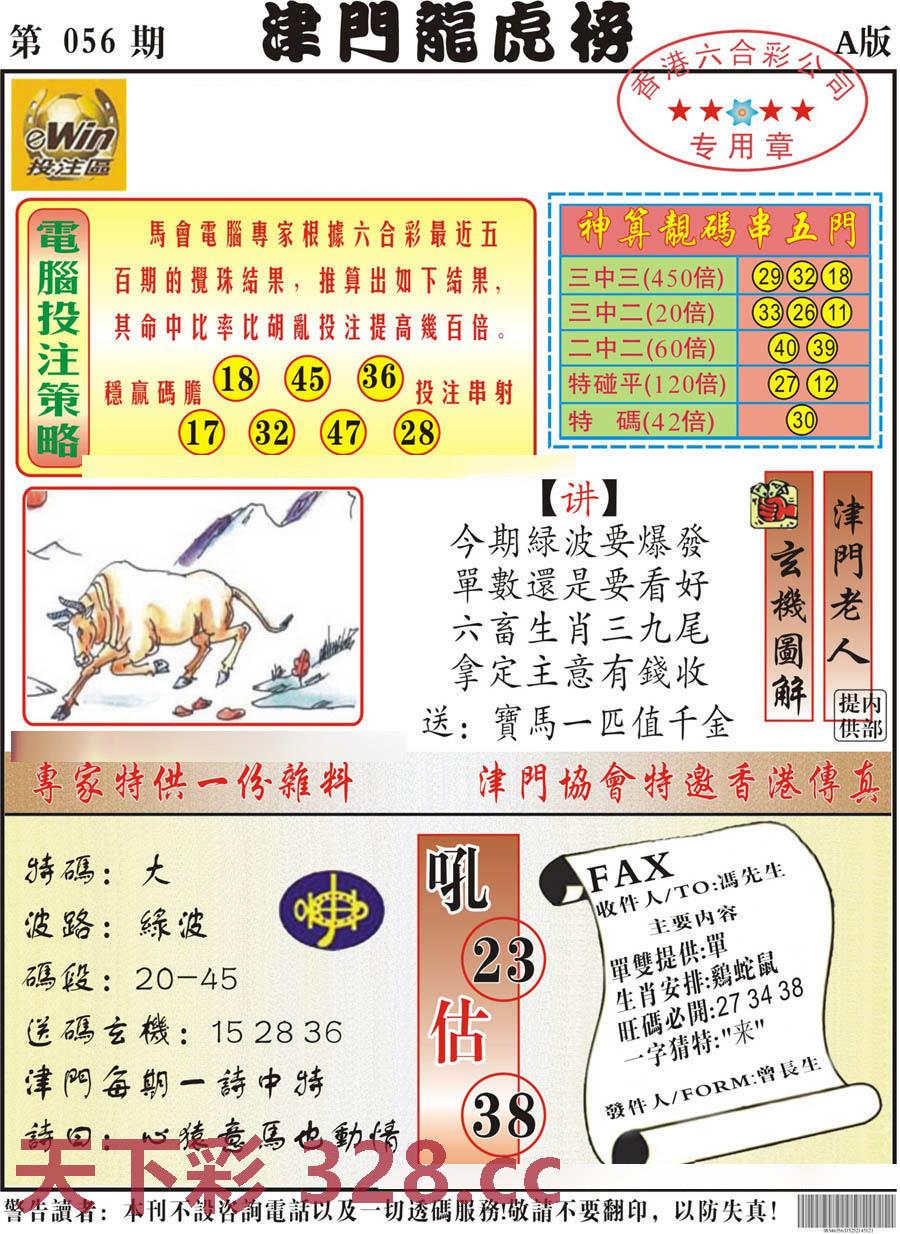 第 056 期
津門龍虎榜
A版
香港六合彩公司
专用章
eWin
投注區
電腦投注策略
馬會電腦專家根據六合彩最近五
百期的攪珠結果，推算出如下結果，
其命中比率比胡亂投注提高幾百倍。
穩贏碼膽 18 45 36 投注串射
17 32 47 28
神算靚碼串五門
三中三(450倍) 29 32 18
三中二(20倍) 33 26 11
二中二(60倍) 40 39
特碰平(120倍) 27 12
特 碼(42倍) 30
【讲】
今期緑波要爆發
單數還是要看好
六畜生肖三九尾
拿定主意有錢收
送：寶馬一匹值千金
玄機圖解
津門老人
内部提供
專家特供一份雜料
津門協會特邀香港傳真
特碼：大
波路：緑波
碼段：20-45
送碼玄機：15 28 36
津門每期一詩中特
詩曰：心猿意馬也動情
吼
23
估
38
FAX
收件人/TO:馮先生
主要内容
單雙提供:單
生肖安排:鷄蛇鼠
旺碼必開:27 34 38
一字猜特:"来"
發件人/FORM:曾長生
天下彩 328.cc
警告讀者：本刊不設咨詢電話以及一切透碼服務!敬請不要翻印，以防失真！